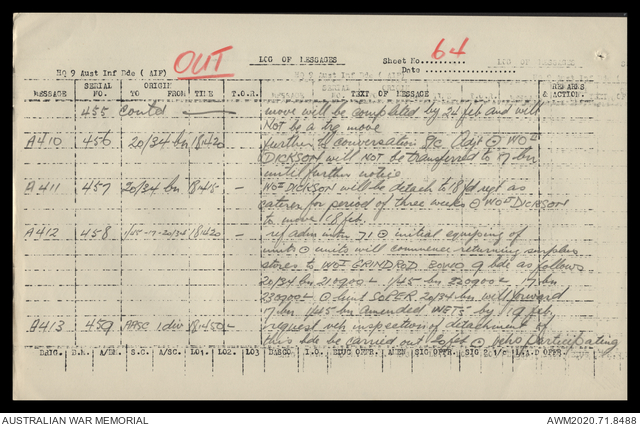 OUT
LOG OF MESSAGES
Sheet No. 64
Date
HQ 9 Aust Inf Bde ( AIF)
MESSAGE SERIAL NO. ORIGIN TO FROM TIME T.O.R. TEXT OF MESSAGE REMARKS & ACTION.
455 contd move will be completed by 24 feb and will
NOT be a bg move
A410 456 20/34 bn 181420 further to conversation S/C Adjt @ WO II
DICKSON will NOT be transferred to 17 bn
until further notice
A411 457 20/34 bn 181415 - WO II DICKSON will be detach to 18 fd regt as
caterer for period of three weeks @ WO II DICKSON
to move 18 feb.
A412 458 1/45-17-20/34 181420 - ref adm instr 71 @ initial equiping of
units @ units will commence returning surplus
stores to WO II GRINDROD BOWO 9 bde as follows
20/34 bn 210900 L 1/45 bn 220900 L 17 bn
230900 L @ Lieut SOPER 20/34 bn will forward
17 bn 1/45 bn amended WETS by 19 feb,
A413 459 AASC 1 div 181450 L request veh inspection of detachment of
this bde be carried out feb @ vehs participating
ORIG. D.R. A/ER. S.C. A/SC. LO1. LO2. LO3 I.O. SIG OFFR. OFFR.
AUSTRALIAN WAR MEMORIAL
AWM2020.71.8488